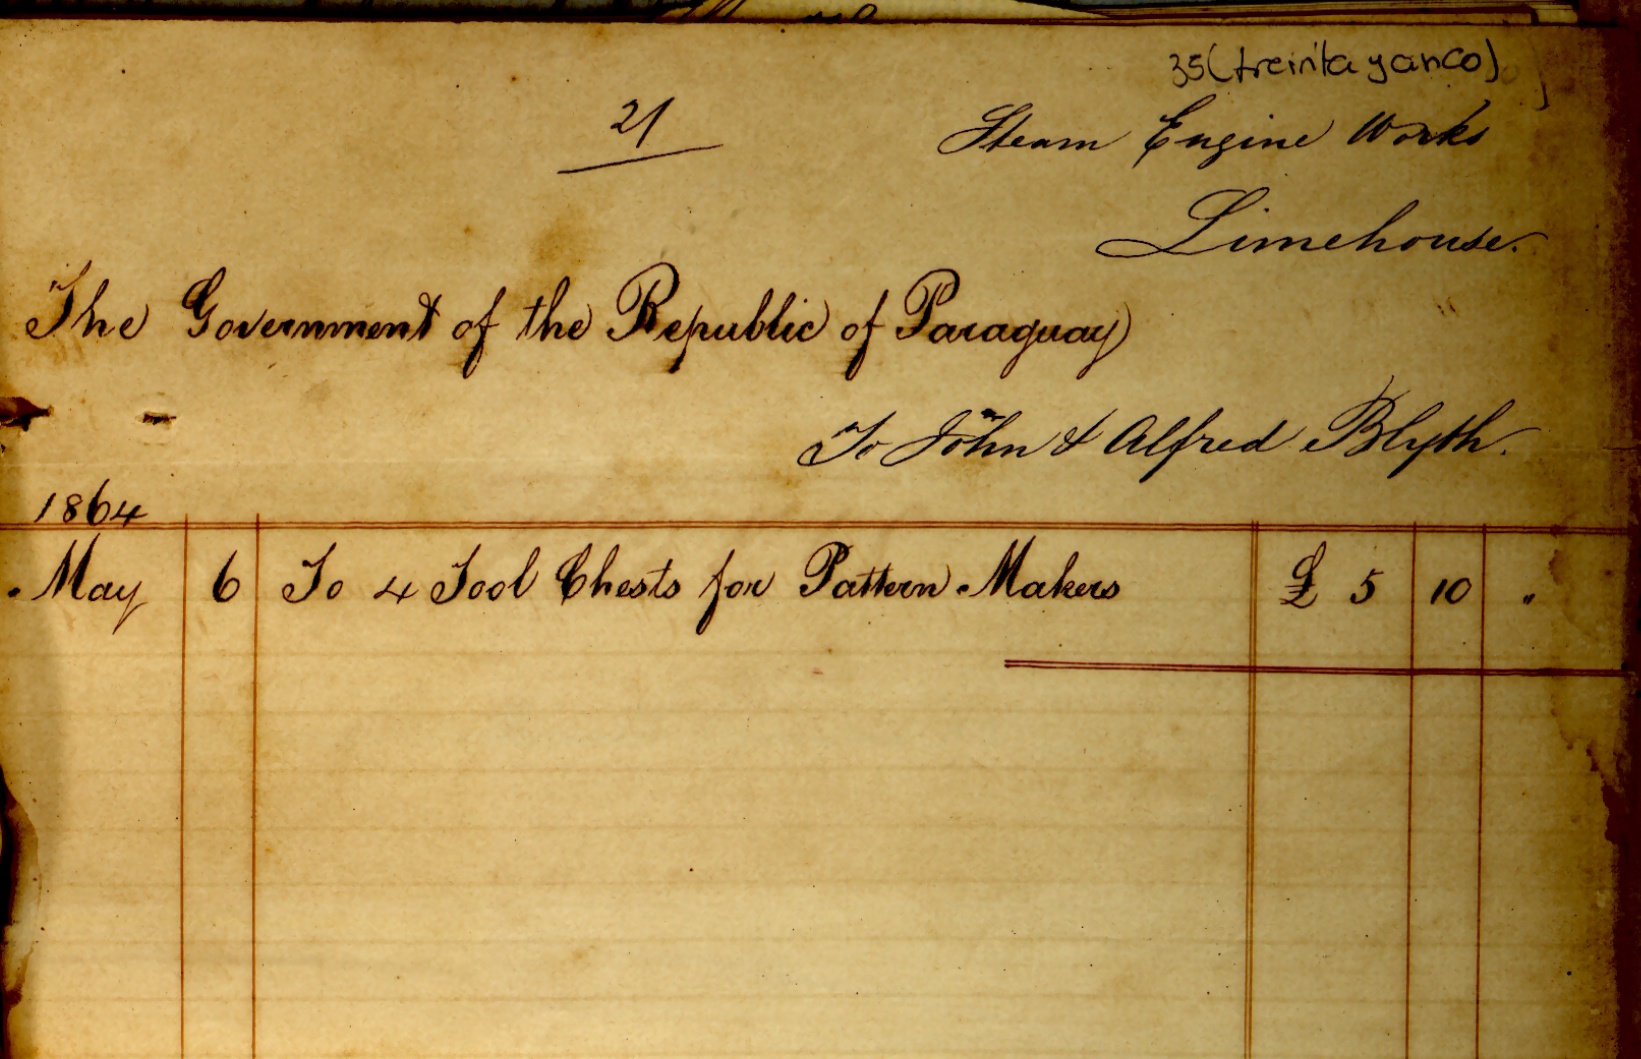 35 (treinta y cinco)
21
Steam Engine Works
Limehouse.
The Government of the Republic of Paraguay
To John & Alfred Blyth.
1864
May 6 To 4 Tool Chests for Pattern Makers £ 5 10 "